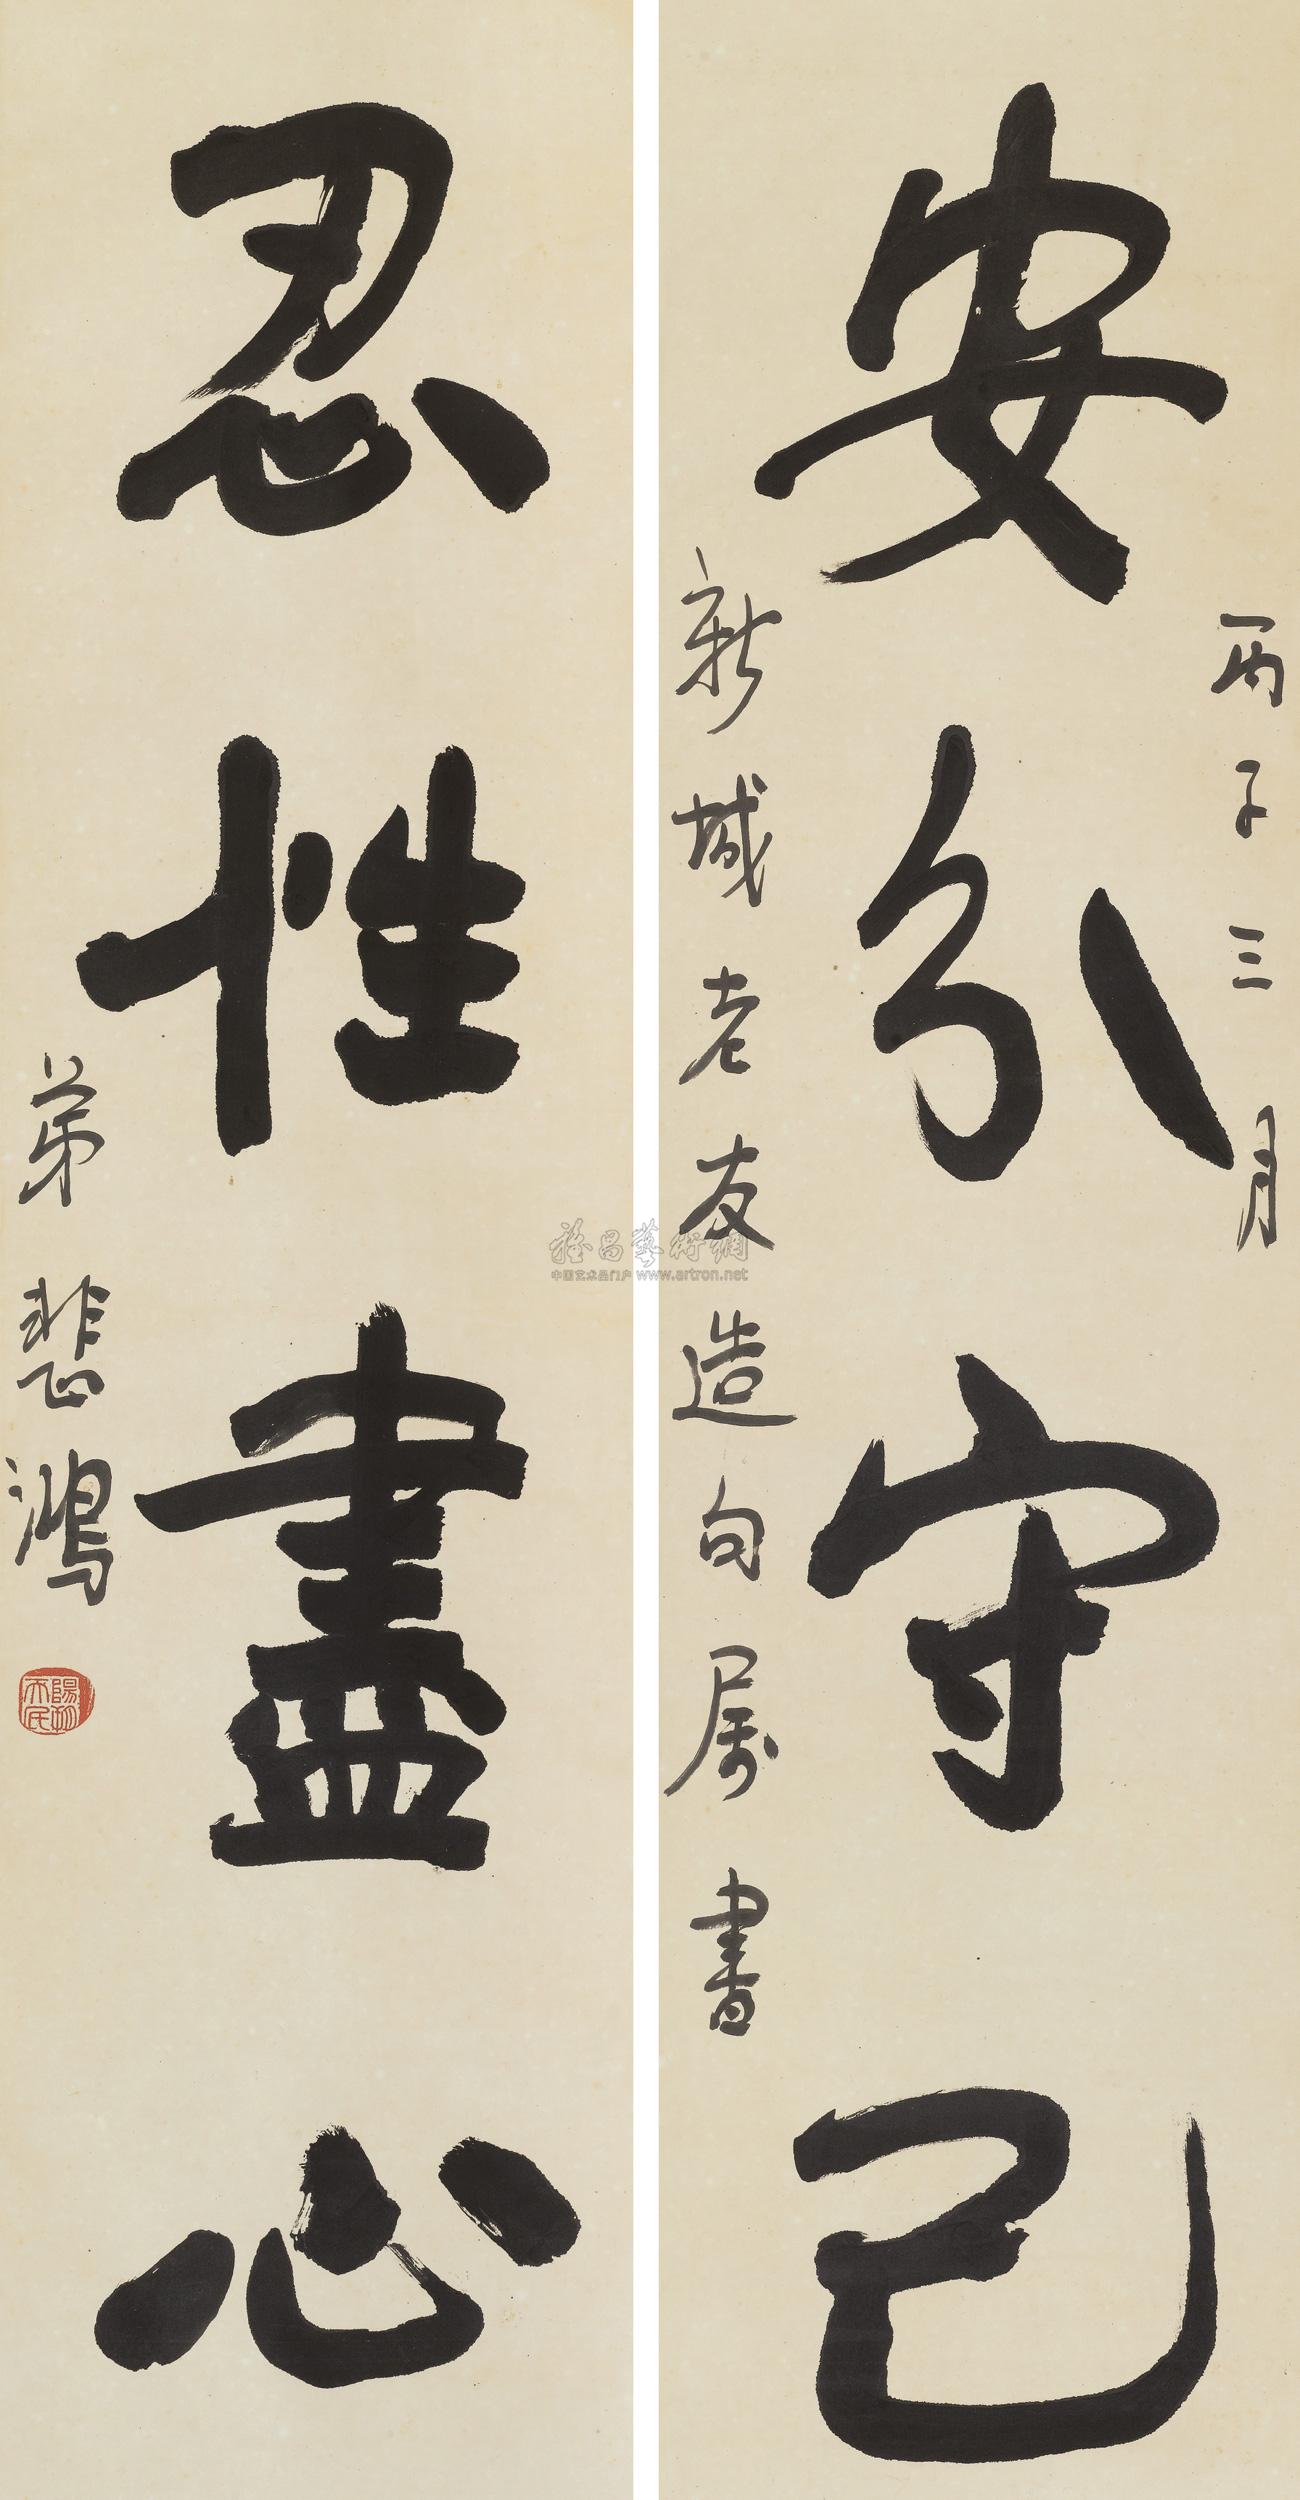 安分守己
丙子三月
新城老友造句属書
忍性盡心
弟悲鴻
雅昌藝術網
中国艺术品门户 www.artron.net